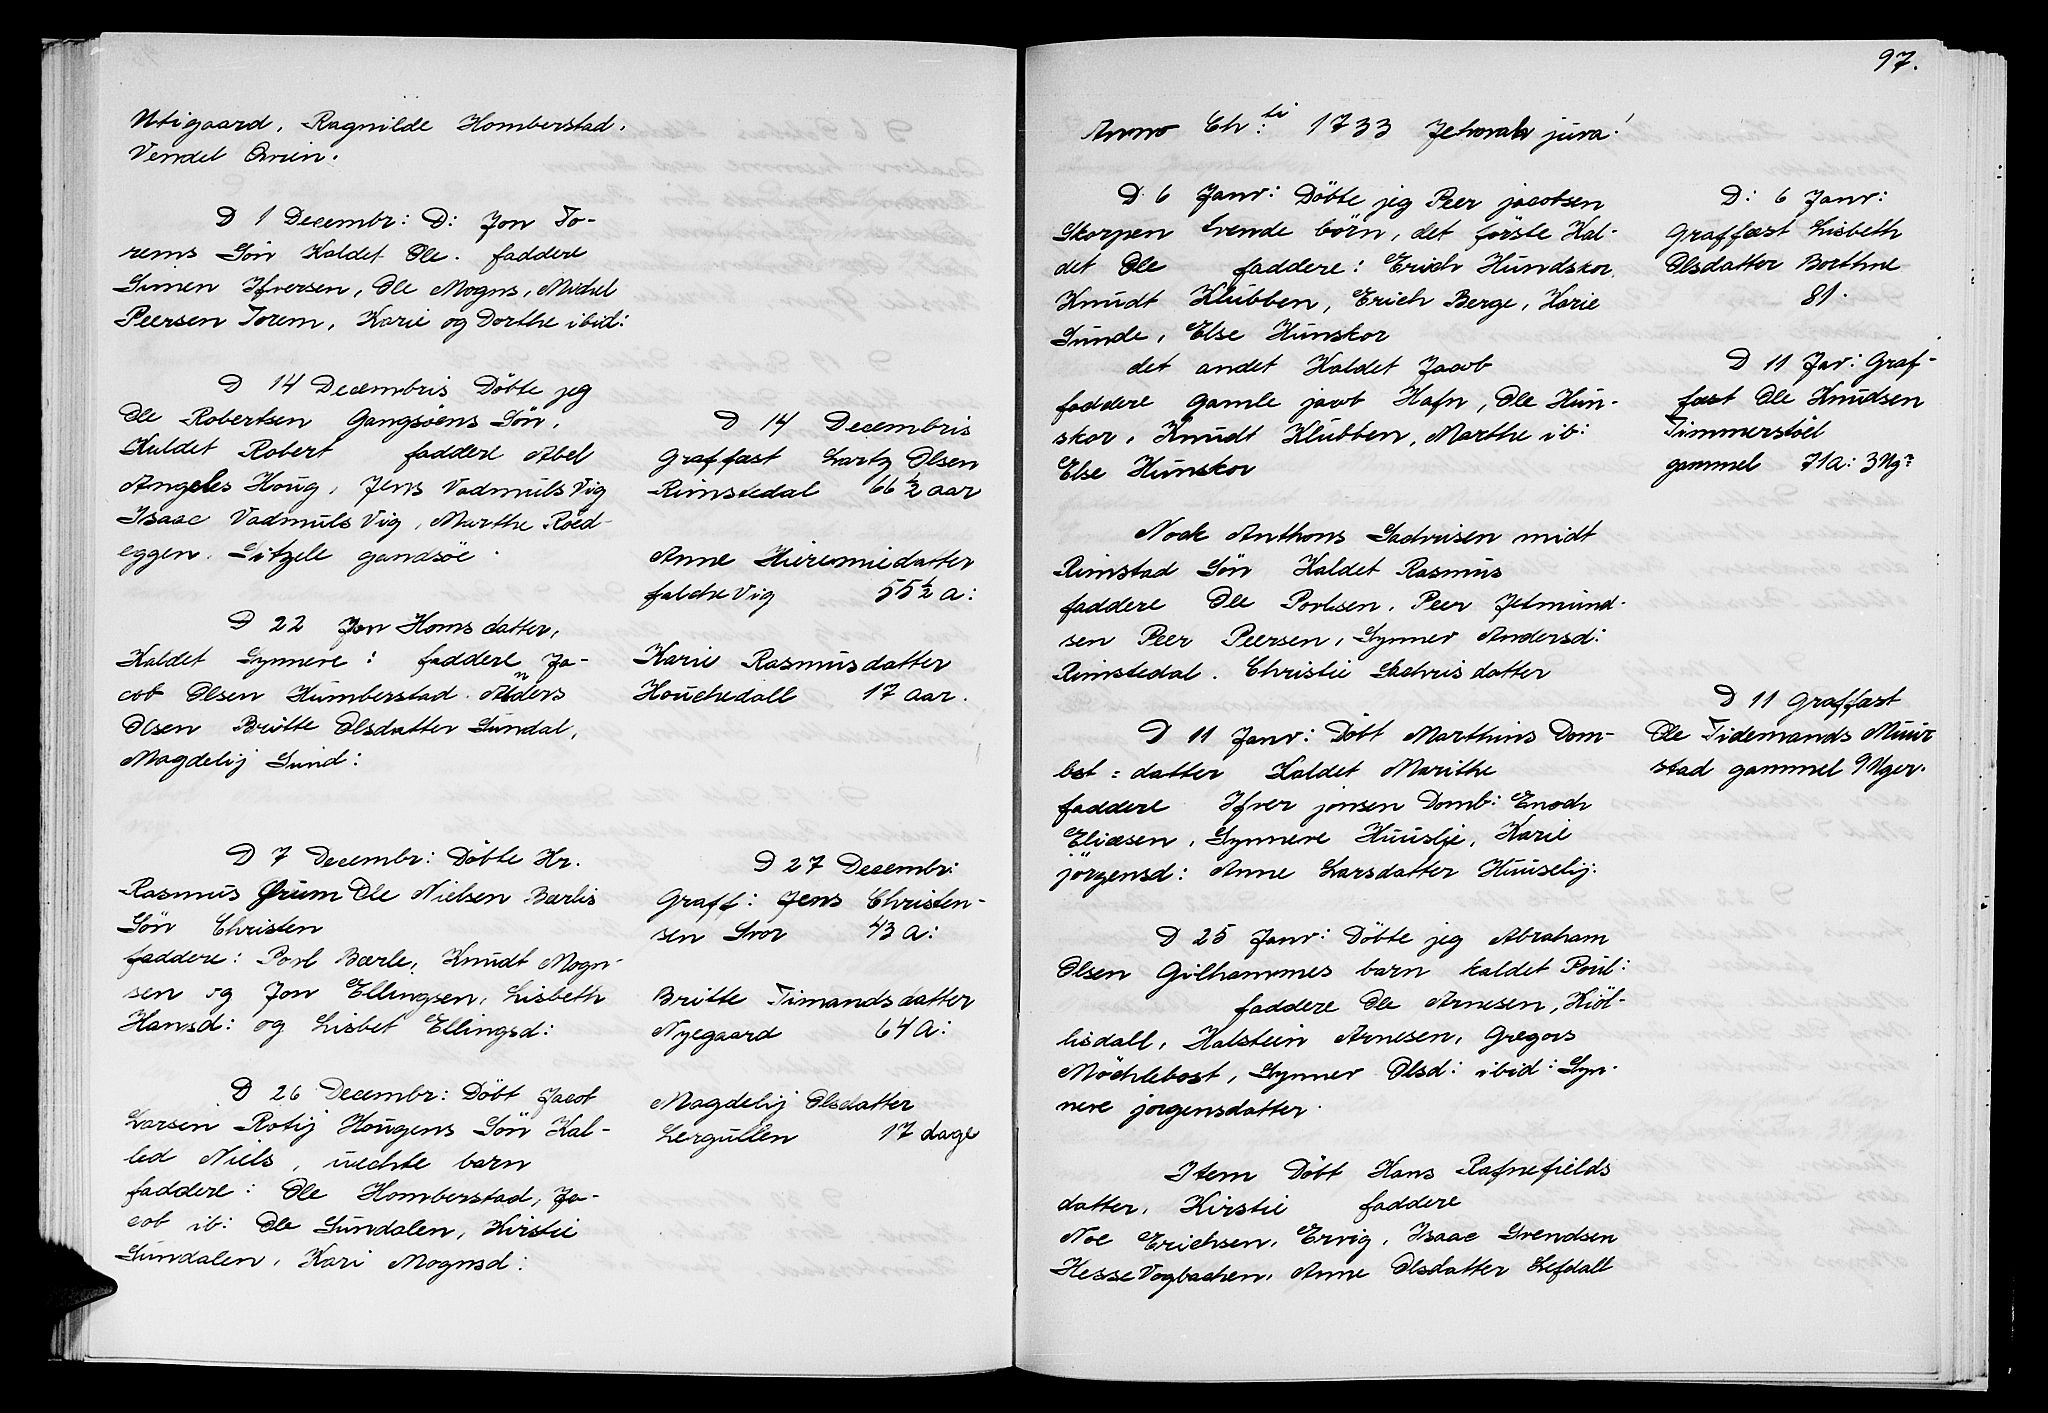 Utigaard, Ragnilde Homberstad.
Vendel Qnien.
D 1 Decembr: D: Jon To-
rems Søn Kaldet Ole. faddere
Simen Ifversen, Ole Mogns, Michel
Peersen Torem, Karie og Dorthe ibid:
D 14 Decembris Döbte jeg
Ole Robertsen Gangsøens Søn,
Kaldet Robert faddere Abel
Angels Houg, Jens Vadmuls Vig
Isaac Vadmuls Vig, Marthe Roed-
eggen. Sitzele gandsöe.
D 22 Jon Homs datter,
Kaldet Synnere: faddere Ja-
cob Olsen Humberstad. Anders
Olsen Britte Olsdatter Sundal,
Magdelij Sund:
D 7 Decembr: Döbte Hr.
Rasmus Ørum Ole Nielsen Bærlis
Søn Christen
faddere: Porl Bærle, Knudt Mogn-
sen og Jon Ellingsen, Lisbeth
Hansd: og Lisbet Ellingsd:
D 26 Decembr: Döbt Jacob
Larsen Rotij Hougens Søn Kal-
led Niels, uechte barn
faddere: Ole Homberstad, Ja-
cob ib: Ole Sundalen, Kirstie
Sundalen, Kari Mognsd:
D 14 Decembris
graffæst Lartz Olsen
Rimstedal 66½ aar
Anne Hieremiedatter
falche Vig 55½ a:
Karie Rasmusdatter
Houchedall 17 aar.
D 27 Decembr:
Graff: Jens Christen-
sen Svor 43 a:
Britte Timandsdatter
Nyegaard 64 a:
Magdelij Olsdatter
Lergullen 17 dage
97.
Anno Ch:ti 1733 Jehovah juva!
D. 6 Janr: Döbte jeg Peer jacobsen
Skorpen tvende börn, det förste Kal-
det Ole faddere: Erich Hundskor
Knudt Klubben, Erich Berge, Karie
Sunde, Else Hunskor
det andet Kaldet Jacob
faddere gamle jacob Hafn, Ole Hun-
skor, Knudt Klubben, Marthe ib:
Else Hunskor
Nock Anthons Sachrisen midt
Rimstad Søn Kaldet Rasmus
faddere Ole Porlsen, Peer Jetmund-
sen Peer Peersen, Synner Andersd:
Rimstedal. Christie Sachrisdatter
D 11 Janr: Döbt Marthins Dom-
bst = datter Kaldet Marithe
faddere Ifver jonsen Domb: Enoch
Eliæsen, Synnere Huuslje, Karie
jörgensd: Anne Larsdatter Huuselij:
D 25 Janr: Döbte jeg Abraham
Olsen Gilhammes barn kaldet Poul:
faddere Ole Arnesen, Kiöl-
lisdall, Halstein Arnesen, Gregors
Möchlebost, Synner Olsd: ibid: Syn-
nere jorgensdatter.
Item Döbt Hans Rafnefields
datter, Kirstie faddere
Noe Erichsen, Ervig, Isaac Svendsen
Hesse Vogbachen, Anne Olsdatter Lefdall
D: 6 Janr:
Graffæst Lisbeth
Olsdatter Borthne
81.
D 11 Jar: Graf-
fæst Ole Knudsen
Timmerstöel
gammel 71 a: 3 Ug:
D 11 graffæst
Ole Tidemands Muur
stad gammel 9 Uger.